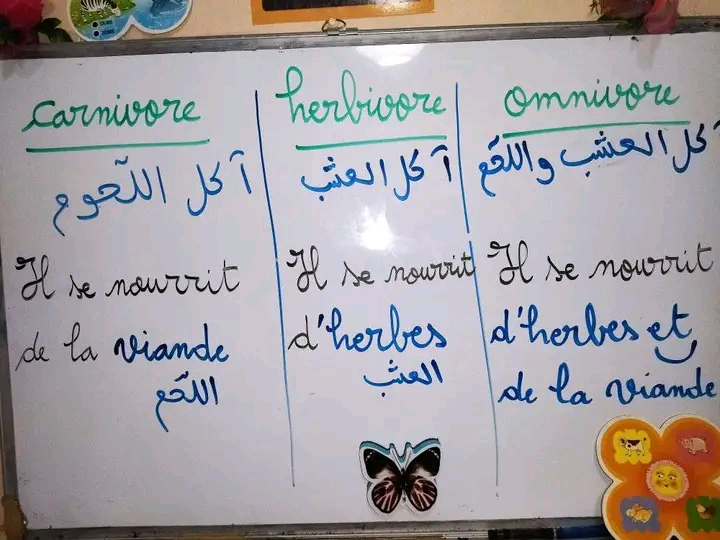 carnivore
آكل اللّحوم
Il se nourrit
de la viande
اللّحم
herbivore
آكل العشب
Il se nourrit
d'herbes
العشب
omnivore
آكل العشب واللّحم
Il se nourrit
d'herbes et
de la viande